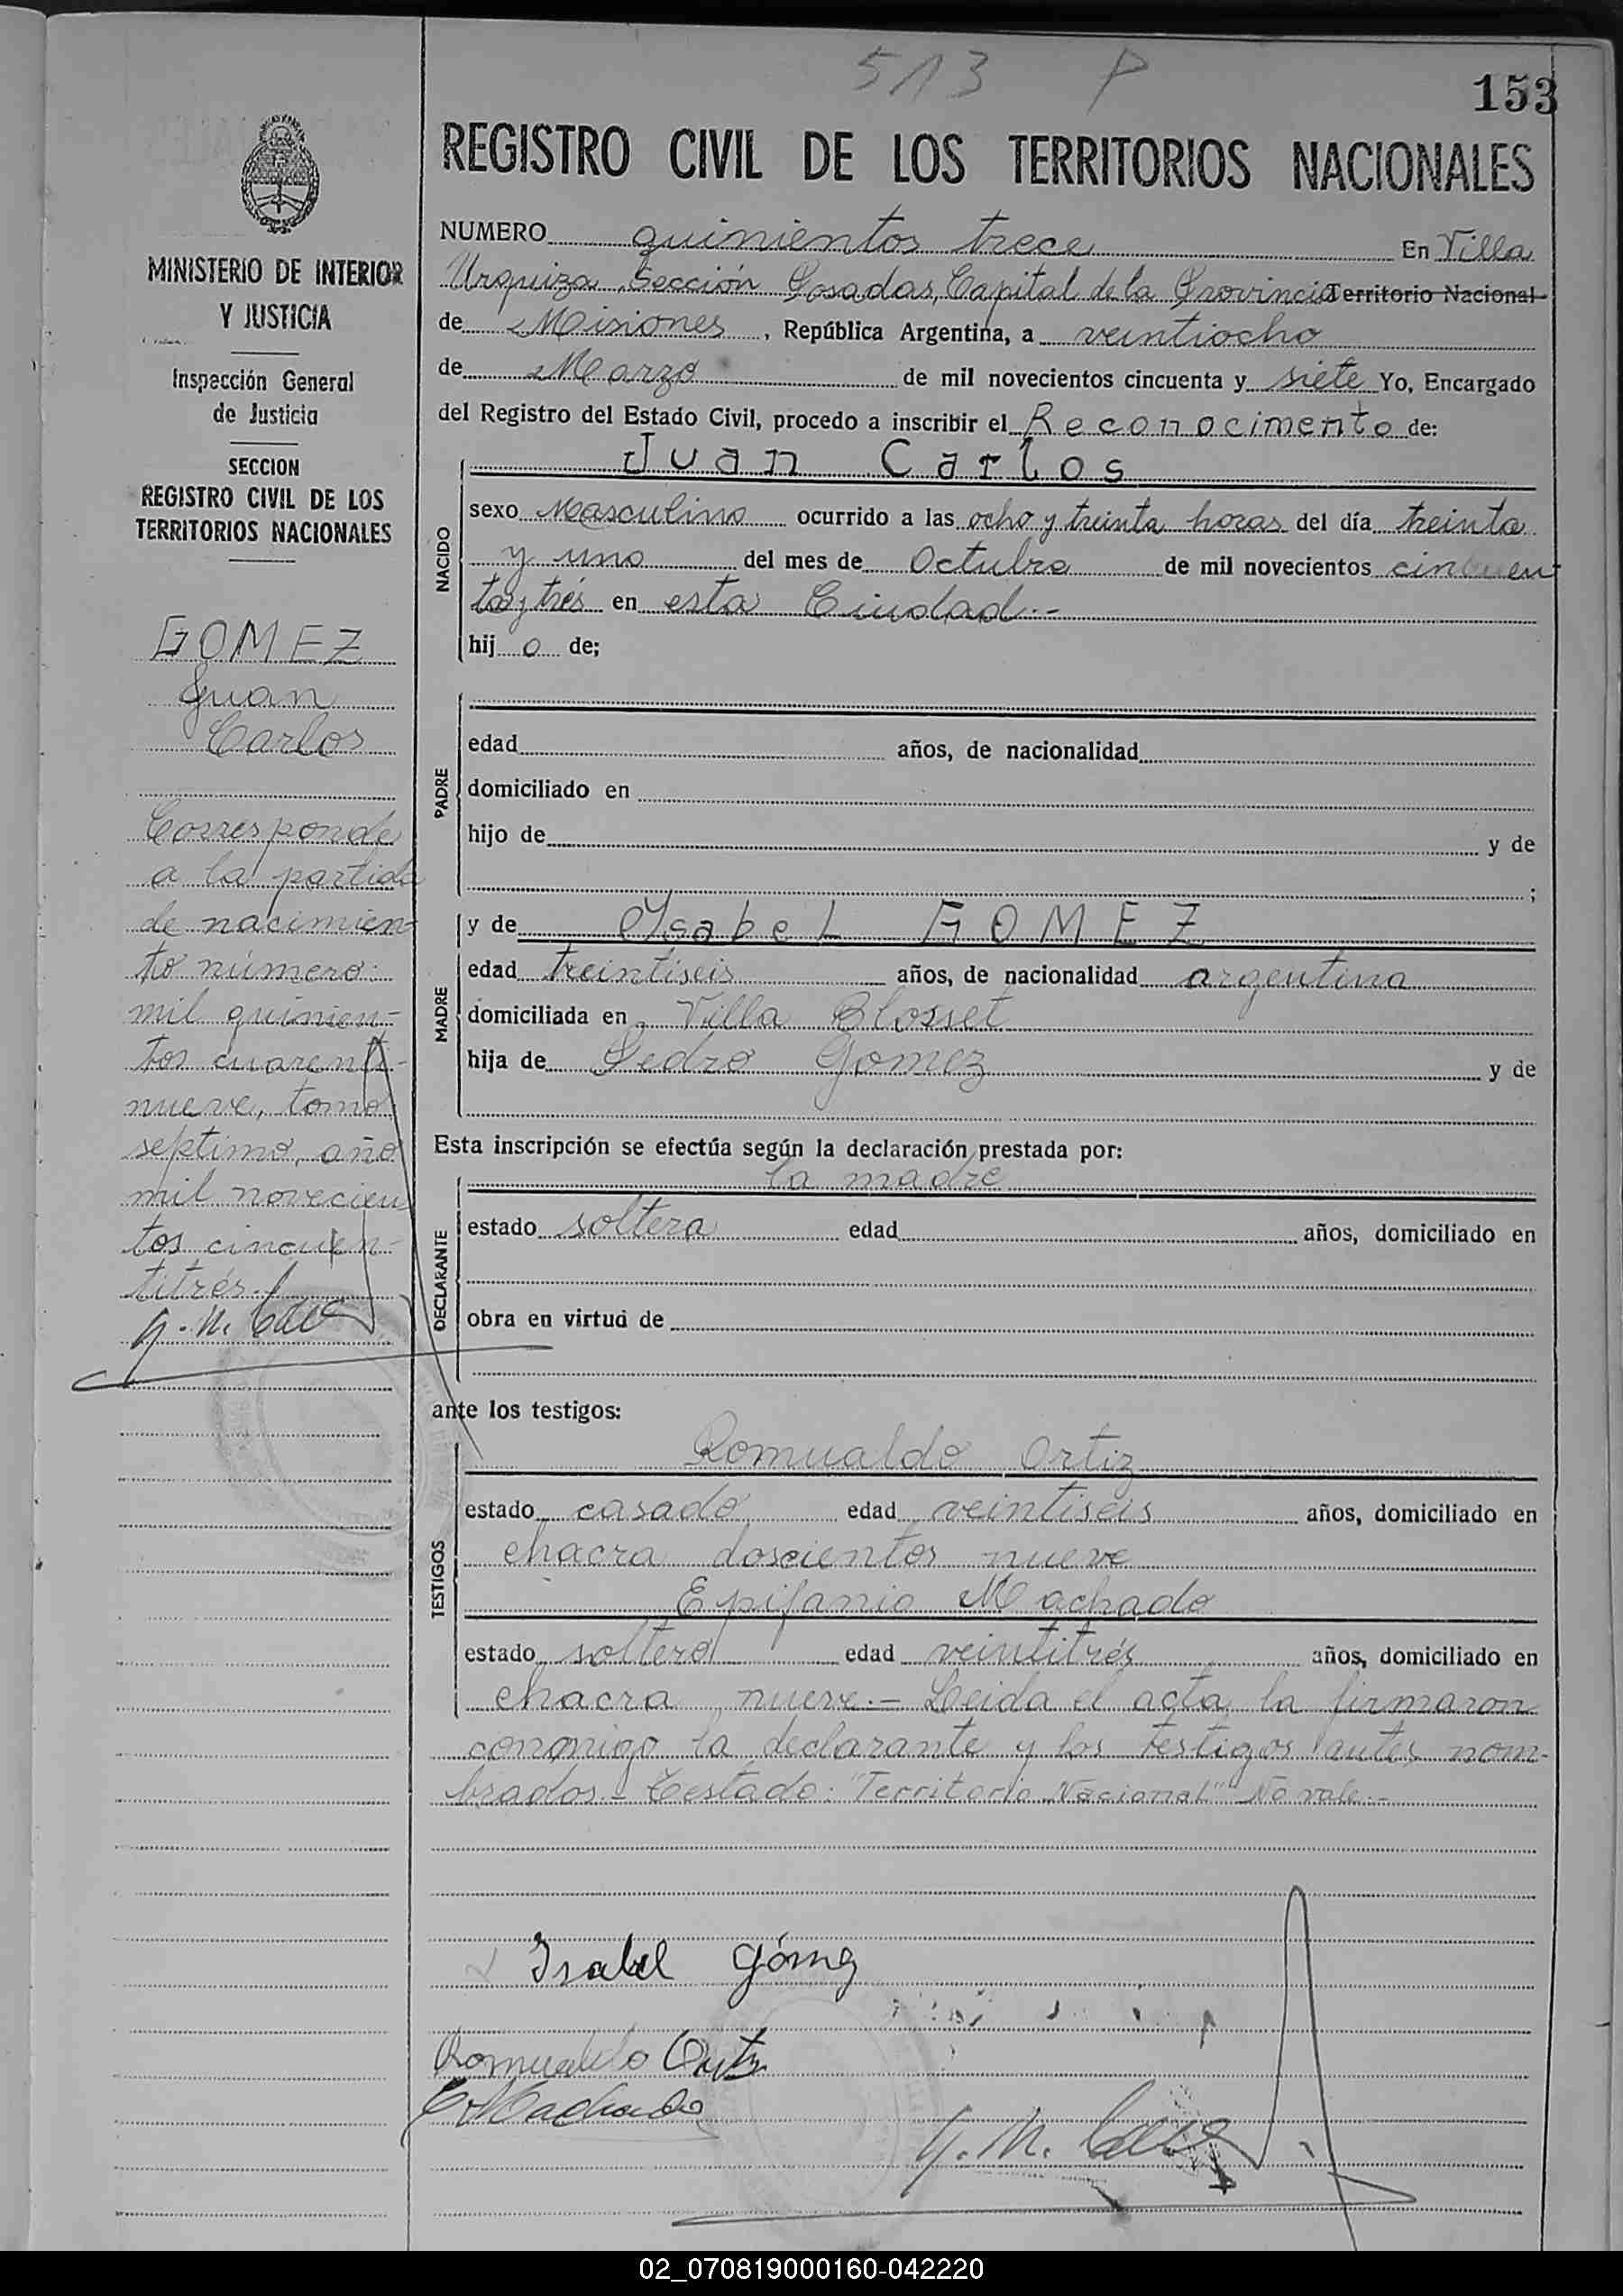 513 P
153
REGISTRO CIVIL DE LOS TERRITORIOS NACIONALES
MINISTERIO DE INTERIOR
Y JUSTICIA
Inspección General
de Justicia
SECCION
REGISTRO CIVIL DE LOS
TERRITORIOS NACIONALES
GOMEZ
Juan
Carlos
Corresponde
a la partida
de nacimien-
to número:
mil quinien-
tos cuarenti-
nueve, tomo
septimo, año
mil novecien
tos cincuen-
titrés.-
NUMERO quinientos trece En Villa
Urquiza, Sección Posadas, Capital de la Provincia Territorio Nacional
de Misiones, República Argentina, a veintiocho
de Marzo de mil novecientos cincuenta y siete Yo, Encargado
del Registro del Estado Civil, procedo a inscribir el Reconocimento de:
Juan Carlos
NACIDO
sexo Masculino ocurrido a las ocho y treinta horas del día treinta
y uno del mes de Octubre de mil novecientos cincuen
ta y trés en esta Ciudad.-
hij o de;
PADRE
edad años, de nacionalidad
domiciliado en
hijo de y de
;
MADRE
y de Ysabel GOMEZ
edad treintiseis años, de nacionalidad argentina
domiciliada en Villa Blosset
hija de Pedro Gomez y de
Esta inscripción se efectúa según la declaración prestada por:
la madre
DECLARANTE
estado soltera edad años, domiciliado en
obra en virtud de
ante los testigos:
Romualdo Ortiz
TESTIGOS
estado casado edad veintiseis años, domiciliado en
chacra doscientos nueve
Epifanio Machado
estado soltero edad veintitrés años, domiciliado en
chacra nueve.- Leida el acta, la firmaron
conmigo la declarante y los testigos antes nom-
brados.- Testado: "Territorio Nacional" No vale.-
Isabel Gómez
Romualdo Ortiz
E Machado
02_070819000160-042220